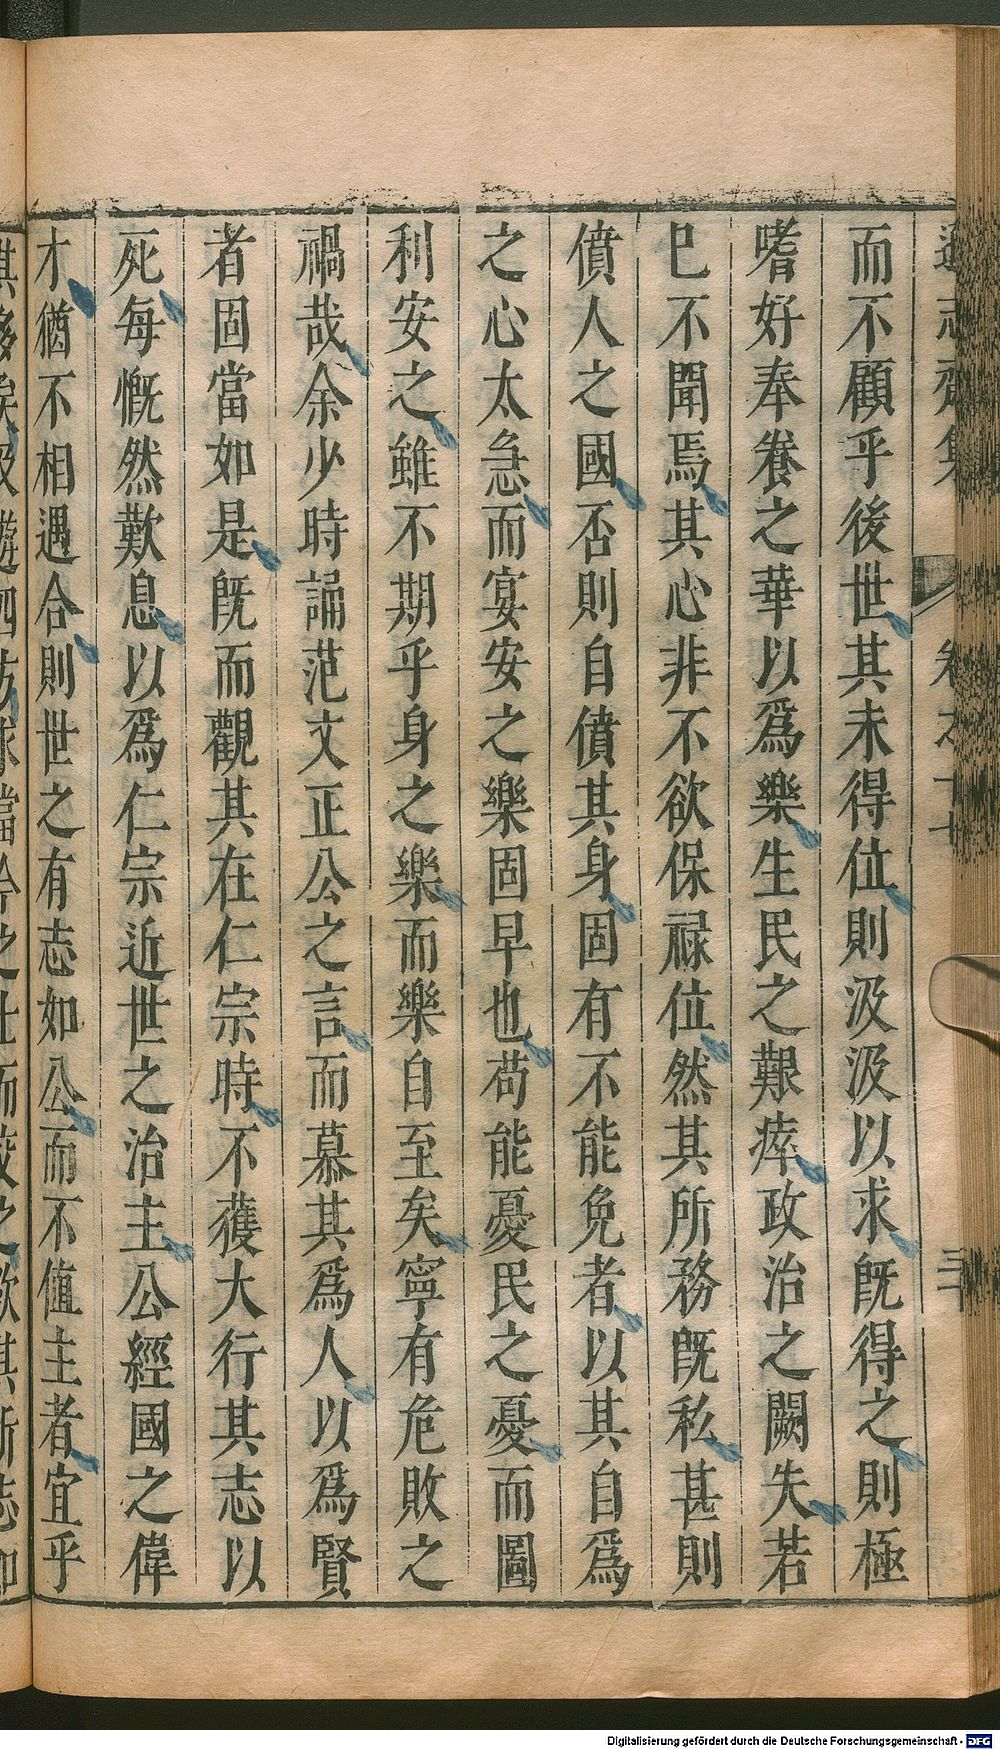 而不顧乎後世其未得位則汲汲以求旣得之則極
嗜好奉養之華以爲樂生民之艱瘁政治之闕失若
已不聞焉其心非不欲保祿位然其所務旣私甚則
僨人之國否則自僨其身固有不能免者以其自爲
之心太急而宴安之樂固早也苟能憂民之憂而圖
利安之雖不期乎身之樂而樂自至矣寧有危敗之
禍哉余少時誦范文正公之言而慕其爲人以爲賢
者固當如是旣而觀其在仁宗時不獲大行其志以
死每慨然歎息以爲仁宗近世之治主公經國之偉
才猶不相遇合則世之有志如公而不值主者宜乎
Digitalisierung gefördert durch die Deutsche Forschungsgemeinschaft - DFG